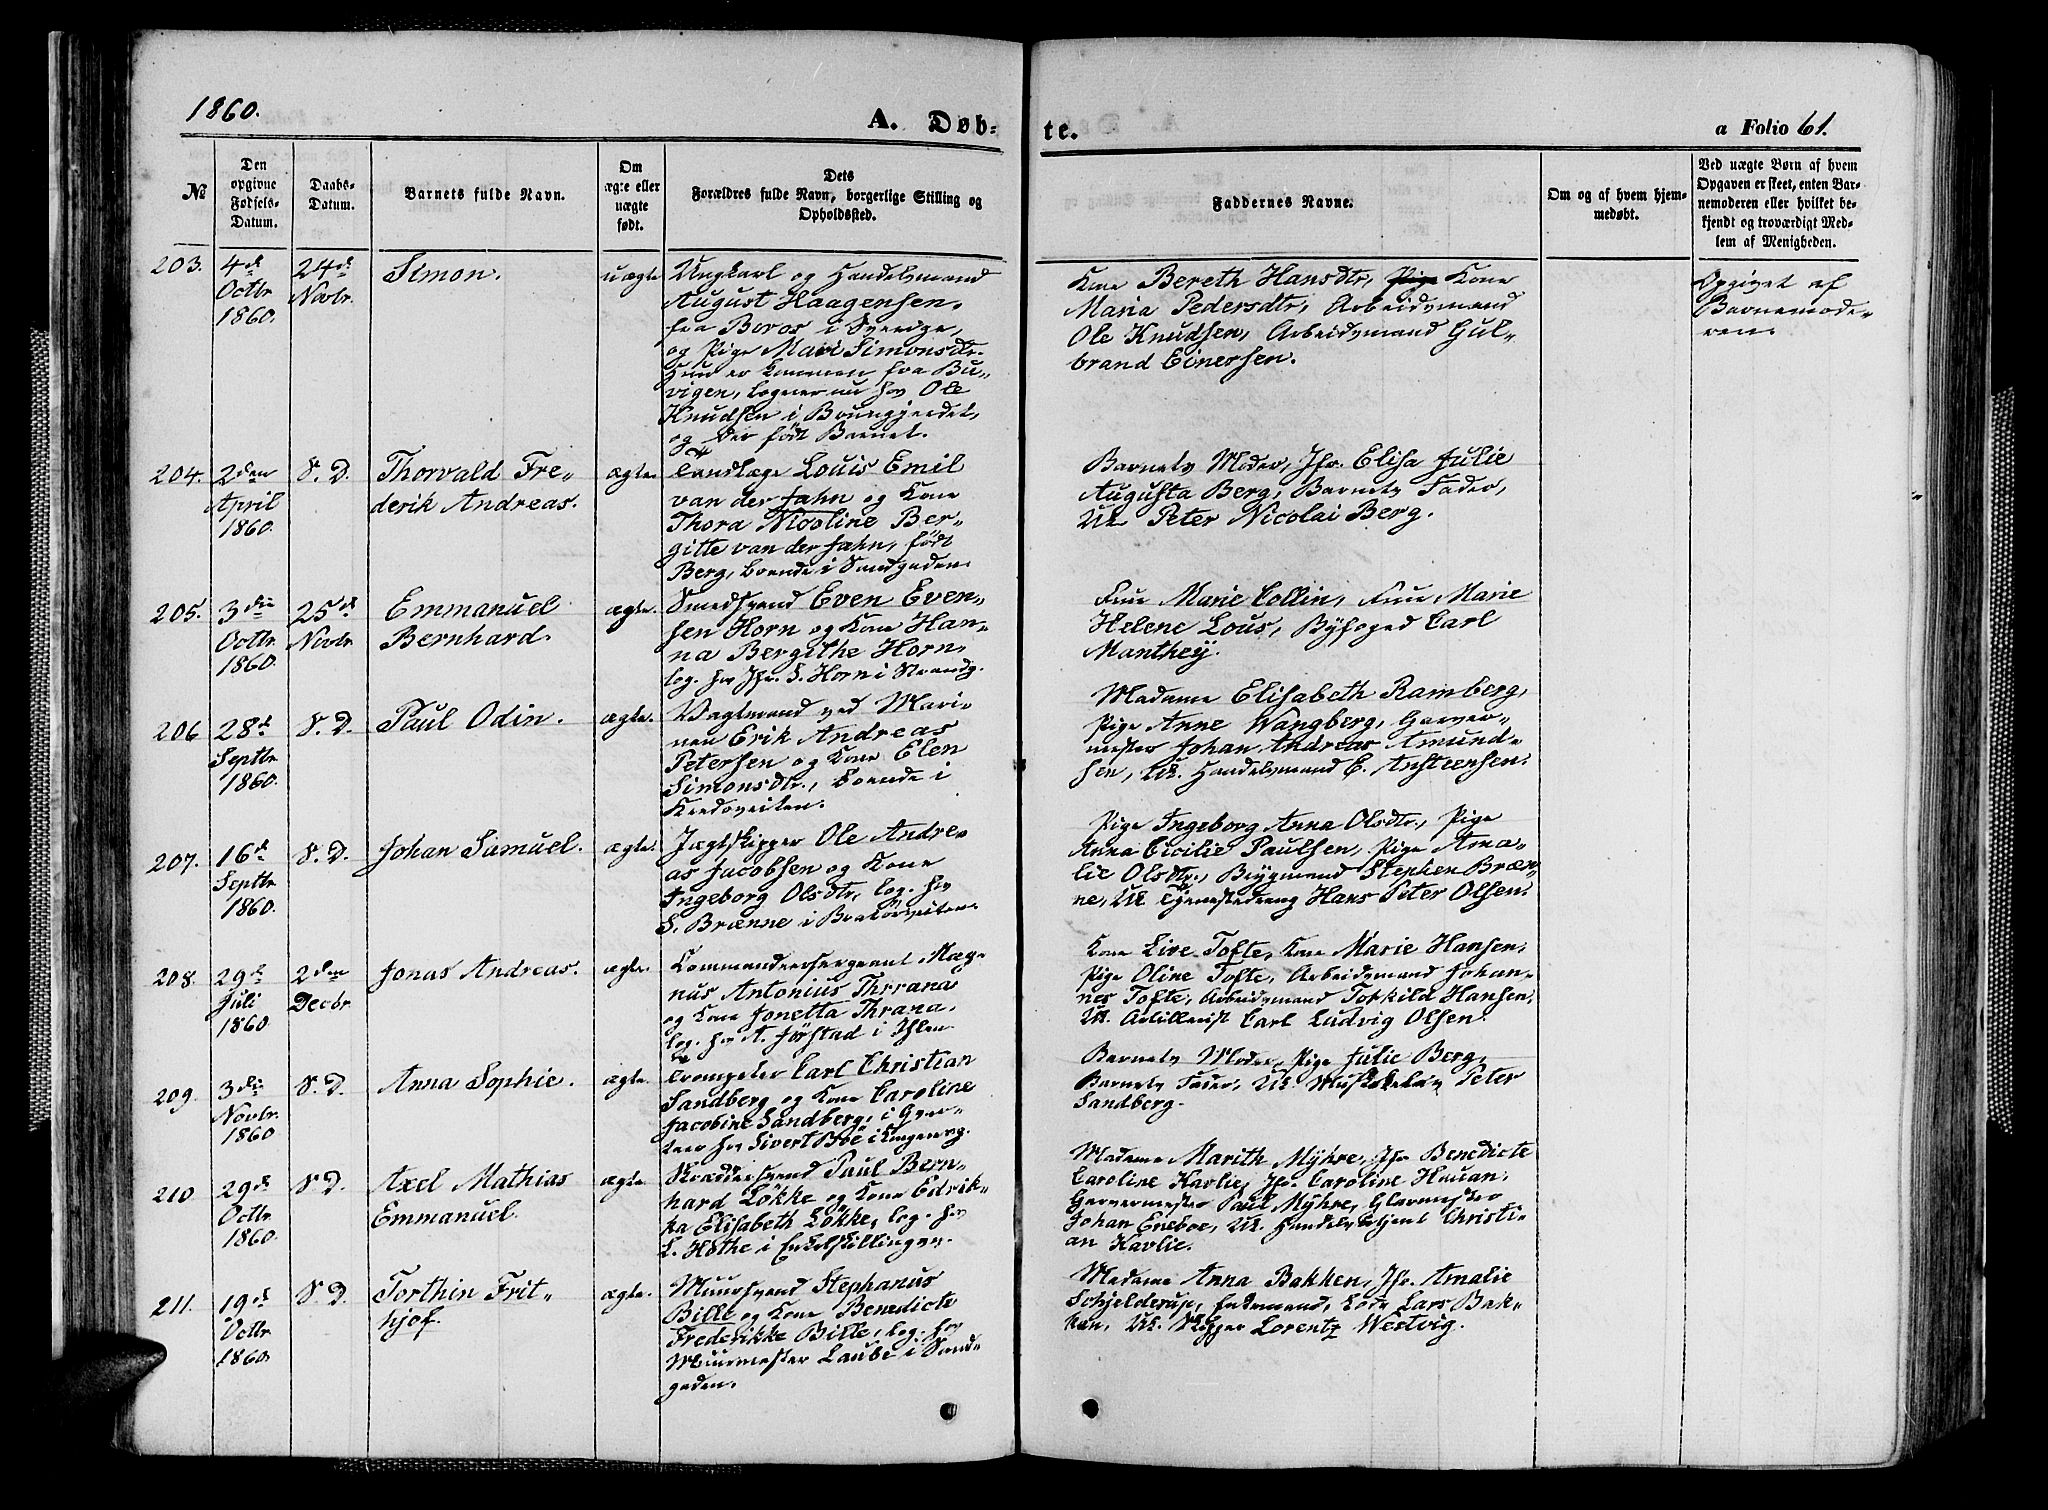 1860.
A. Døb-
te.
a Folio 61.
№
Den
opgivne
Fødsels-
Datum.
Daabs-
Datum.
Barnets fulde Navn.
Om
ægte eller
uægte
født.
Dets
Forældres fulde Navn, borgerlige Stilling og
Opholdssted.
Faddernes Navne.
Om og af hvem hjem-
medøbt.
Ved uægte Børn af hvem
Opgaven er skeet, enten Bar-
nemoderen eller hvilket be-
kjendt og troværdigt Med-
lem af Menigheden.
203.
4de
Octbr
1860.
24de
Novbr.
Simon.
uægte
Ungkarl og Handelsmand
August Haagensen,
fra Boros i Sverige,
og Pige Mari Simonsdtr.
Hun er kommen fra Bu-
vigen, logerer nu hos Ole
Knudsen i Bruungjerdet,
og der født Barnet.
Kone Bereth Hansdtr, Pige Kone
Maria Pedersdtr, Arbeidsmand
Ole Knudsen, Arbeidsmand Gul-
brand Einersen.
Opgivet af
Barnemode-
ren.
204.
2den
April
1860.
S. D.
Thorvald Fre-
derik Andreas.
ægte.
Tandlæge Louis Emil
van der Fahn og Kone
Thora Nicoline Ber-
gitte van der Fahn, født
Berg, boende i Sandgaden.
Barnets Moder, Jfr. Elisa Julie
Augusta Berg, Barnets Fader,
Uk Peter Nicolai Berg.
205.
3die
Octbr
1860.
25de
Novbr
Emmanuel
Bernhard.
ægte.
Smedsvend Even Even-
sen Horn og Kone Han-
na Bergithe Horn,
log. hos Jfr. S. Horn i Strandg.
Frue Marie Collin, Frue Marie
Helene Lous, Byfoged Carl
Manthey.
206
28de
Septbr
1860.
S. D.
Paul Odin.
ægte.
Vagtmand ved Mari-
nen Erik Andreas
Petersen og Kone Elen
Simonsdtr., boende i
Kredsveiten.
Madame Elisabeth Ramberg,
Pige Anne Wangberg, Garver-
mester Johan Andreas Amund-
sen, Uk. Handelsmand E. Anstensen.
207.
16de
Septbr
1860.
S. D.
Johan Samuel.
ægte.
Jægtskipper Ole Andre-
as Jacobsen og Kone
Ingeborg Olsdtr, log. hos
S. Brænne i Bratørveiten.
Pige Ingeborg Anna Olsdtr., Pige
Anna Cicilie Paulsen, Pige Ama-
lie Olsdtr., Brygmand Stephen Bræn-
ne, Uk. Tjenestedreng Hans Peter Olsen.
208.
29de
Juli
1860
2den
Decbr
Jonas Andreas.
ægte.
Kommandeersergeant Mag-
nus Antonius Thrrana
og Kone Jonetta Thrana,
log. hos A. Jørstad i Ihlen.
Kone Live Tofte, Kone Marie Hansen,
Pige Oline Tofte, Arbeidsmand Johan-
nes Tofte, Arbeidsmand Torkild Hansen,
Uk. Artillerist Carl Ludvig Olsen.
209.
3die
Novbr.
1860
S. D.
Anna Sophie.
ægte.
Trompeter Carl Christian
Sandberg og Kone Caroline
Jacobine Sandberg,
hos Sivert Boe i Kongensg.
Barnets Moder, Pige Julie Berg,
Barnets Fader, Uk. Peter
Sandberg.
210
29de
Octbr
1860.
S D.
Axel Mathias
Emmanuel.
ægte.
Skræddersvend Paul Bern-
hard Løkke og Kone Edrik-
ka Elisabeth Løkke, log. hos
L. Høthe i Enkelskillingen.
Madame Marith Myhre, Jfr Benedicte
Caroline Havlie, Jfr. Caroline Hauan,
Garvermester Paul Myhre, Glarmester
Johan Eneboe, Uk. Handelsbetjent Christi-
an Havlie.
211.
19de
Octbr
1860
S. D.
Torthin Frit-
hjof.
ægte.
Muursvend Stephanus
Bille og Kone Benedicte
Frederikke Bille, log. hos
Muurmester Laube i Sand-
gaden.
Madame Anna Bakken, Jfr. Amalie
Schjelderup, Lars Bak-
ken, Uk. Skipper Lorentz Westvig.